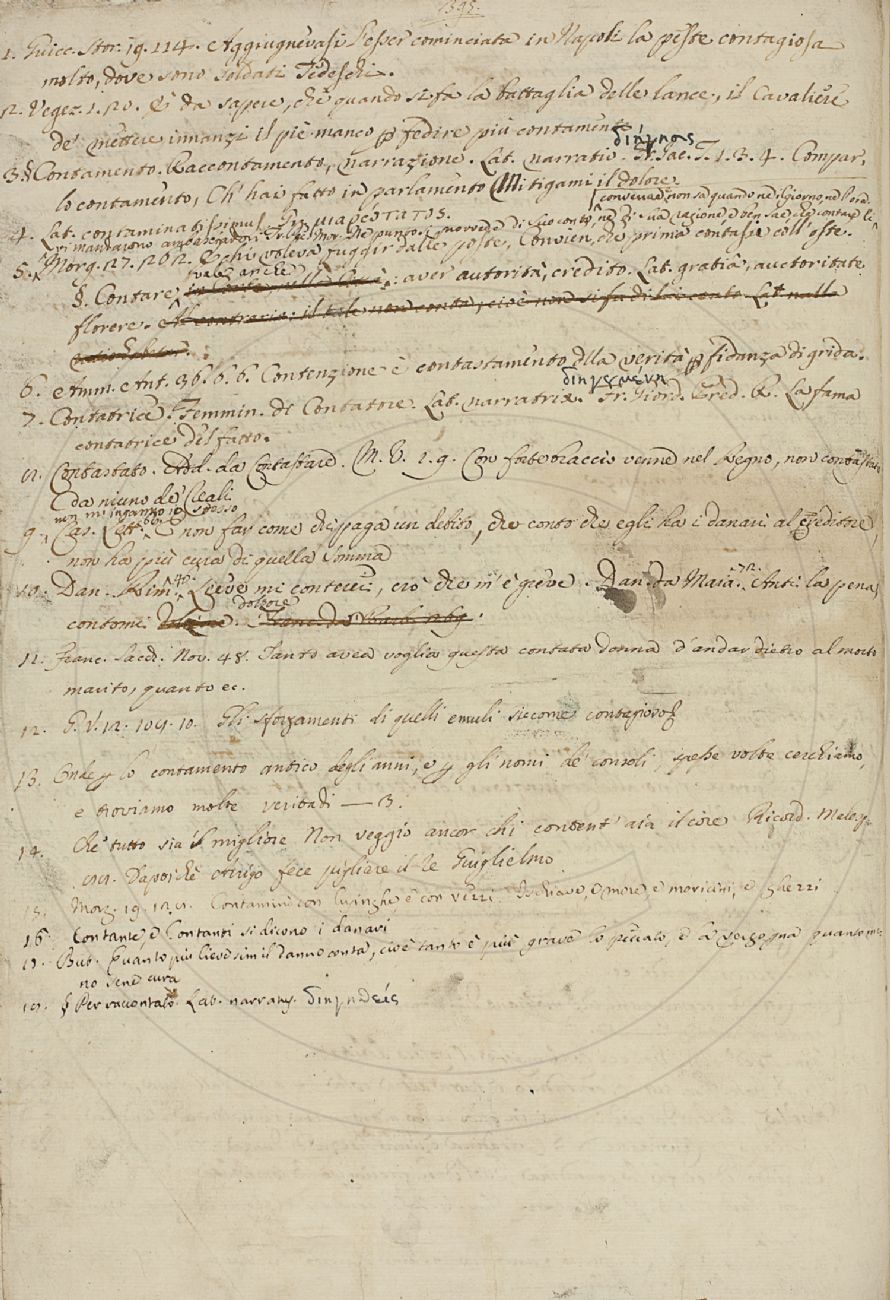 1395.
1. Guicc. Stor. 19. 114. e Aggiugnevasi l'esser cominciata in Napoli la peste contagiosa
molto, dove sono soldati Tedeschi.
2. Vegez. 1. 20. È da sapere, che quando si fa la battaglia delle lance, il Cavaliere
de' mettere innanzi il piè manco p fedire più contamente
διήγησις
3. § Contamento. Raccontamento, narrazione. Lat. narratio. Fr. Iac. T. 1. 3. 4. Compar,
lo contamento, Ch' hai fatto in parlamento Mitigami il dolore.
conviene non sa quando nè il giorno, nè l'ora
4. Lat. contaminatissimus. Gr. μιαρώτατος.
5. Morg. 27. 202. E chi voleva fuggir dalle poste, Convien, che prima contasse coll'oste.
vale anche
§. Contare, aver autorità, credito. Lat. gratiâ, auctoritate
florere. e Al contrario: il tale non conta, cioè non si fa di lui conto. Lat. nulla
6. e Amm. e Ant. 36. 6. 6. Contenzione è contastamento della verità p fidanza di grida.
διηγημένη
7. Contatrice. Femmin. di Contatore. Lat. narratrix. Fr. Giord. Pred. R. La fama
contatrice del fatto.
8. Contastato. Add. da Contastare. M. V. 1. 9. Con forte braccio venne nel Regno, non contastato
da niuno de' Reali
non m'inganno io stesso
9. Cas. Lett. E non far come chi paga un debito, che conto che egli ha i danari al creditore,
non ha più cura di quella somma
10. Dan. Rim. 40. Lieve mi conteria, ciò che m'è greve. Dan. da Maia. 72. Anti. la pena
contomi dolzore.
11. Franc. Sacch. Nov. 48. Tanto avea voglia questa contata donna d'andar dietro al morto
marito, quanto ec.
12. G. V. 12. 108. 10. Gli sforzamenti di quelli emuli siccome contagiosi
13. Onde p lo contamento antico degli anni, e p gli nomi de' consoli, spesse volte cerchiamo,
e troviamo molte veritadi — B.
14. Che tutto sia il migliore Non veggio ancor chi content' aia il core Ricord. Malesp.
Dapoichè Arrigo fece pigliare il Re Guiglielmo
15. Morg. 19. Contamini con lusinghe, e con vezzi
16. Contante, e Contanti si dicono i danari
17. But. Quanto più lieve simil danno conta, cioè tanto è più grave lo peccato, e la vergogna quanto
no se ne cura
18. § Per raccontato. Lat. narratus. διηγηθείς